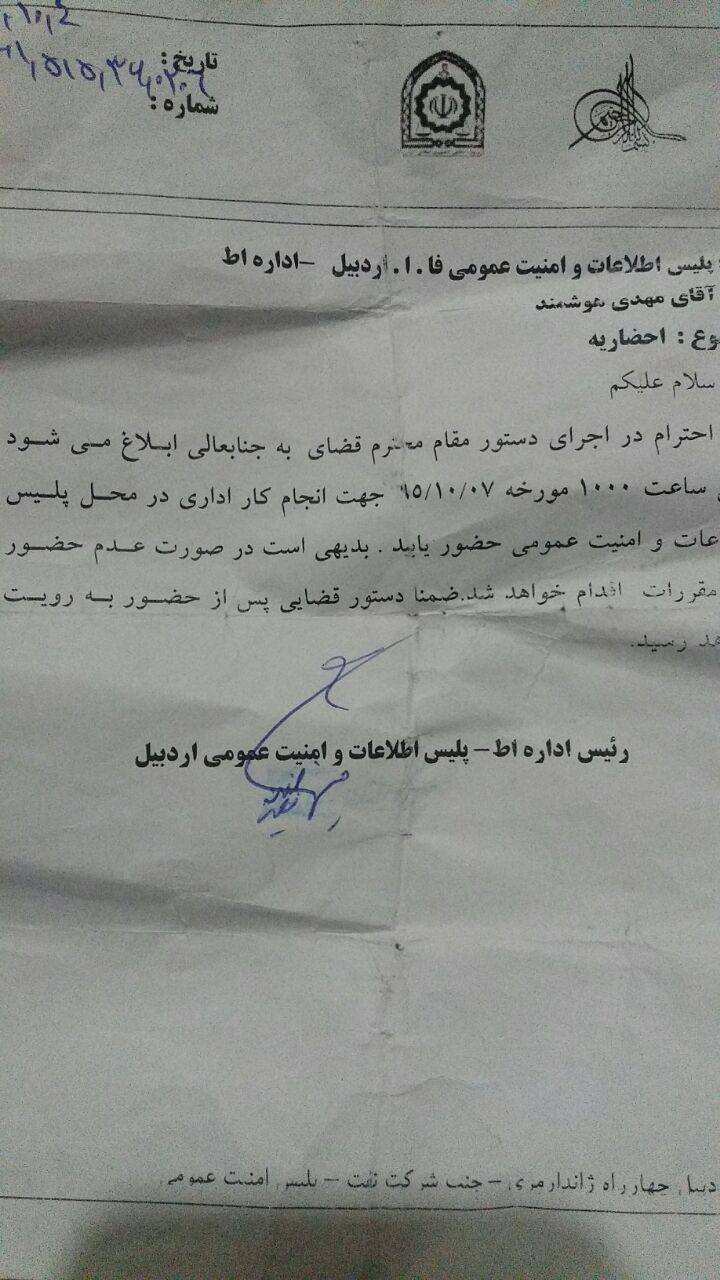 تاریخ:
شماره:
پلیس اطلاعات و امنیت عمومی فا.ا.اردبیل -اداره اط
آقای مهدی هوشمند
احضاریه
سلام علیکم
احترام در اجرای دستور مقام محترم قضای به جنابعالی ابلاغ می شود
ساعت ۱۰۰۰ مورخه ۹۵/۱۰/۰۷ جهت انجام کار اداری در محل پلیس
و امنیت عمومی حضور یابید . بدیهی است در صورت عدم حضور
مقررات اقدام خواهد شد.ضمنا دستور قضایی پس از حضور به رویت
رسید.
رئیس اداره اط- پلیس اطلاعات و امنیت عمومی اردبیل
چهارراه ژاندارمری - جنب شرکت نفت - پلیس امنیت عمومی